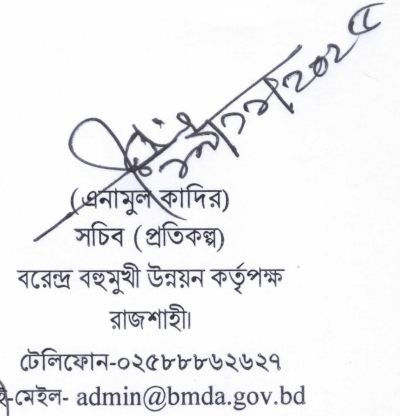 (এনামুল কাদির)
সচিব (প্রতিকল্প)
বরেন্দ্র বহুমুখী উন্নয়ন কর্তৃপক্ষ
রাজশাহী।
টেলিফোন-০২৫৮৮৮৬২৬২৭
ই-মেইল- admin@bmda.gov.bd